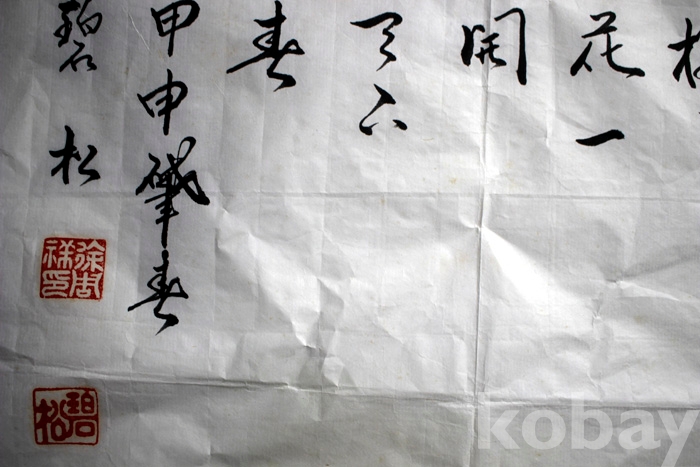 花一
開
天下
春
甲申肇春
碧松
徐周祥印
碧松
kobay